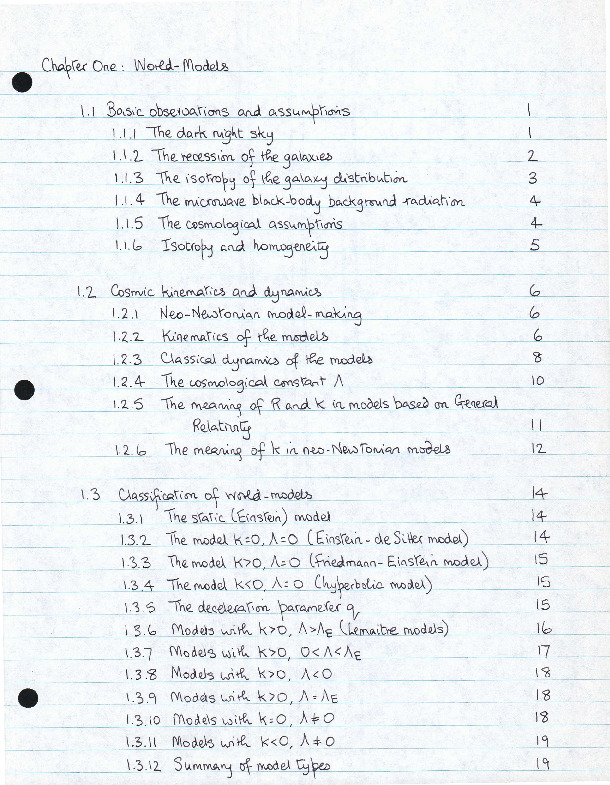 Chapter One: World-Models
1.1 Basic observations and assumptions 1
1.1.1 The dark night sky 1
1.1.2 The recession of the galaxies 2
1.1.3 The isotropy of the galaxy distribution 3
1.1.4 The microwave black-body background radiation 4
1.1.5 The cosmological assumptions 4
1.1.6 Isotropy and homogeneity 5
1.2 Cosmic kinematics and dynamics 6
1.2.1 Neo-Newtonian model-making 6
1.2.2 Kinematics of the models 6
1.2.3 Classical dynamics of the models 8
1.2.4 The cosmological constant Λ 10
1.2 5 The meaning of R and k in models based on General
Relativity 11
1.2.6 The meaning of k in neo-Newtonian models 12
1.3 Classification of world-models 14
1.3.1 The static (Einstein) model 14
1.3.2 The model k=0, Λ=0 (Einstein-de Sitter model) 14
1.3.3 The model k>0, Λ=0 (Friedmann-Einstein model) 15
1.3.4 The model k<0, Λ=0 (hyperbolic model) 15
1.3 5 The deceleration parameter q 15
1.3.6 Models with k>0, Λ>ΛE (Lemaitre models) 16
1.3.7 Models with k>0, 0<Λ<ΛE 17
1.3.8 Models with k>0, Λ<0 18
1.3.9 Models with k>0, Λ=ΛE 18
1.3.10 Models with k=0, Λ≠0 18
1.3.11 Models with k<0, Λ≠0 19
1.3.12 Summary of model types 19